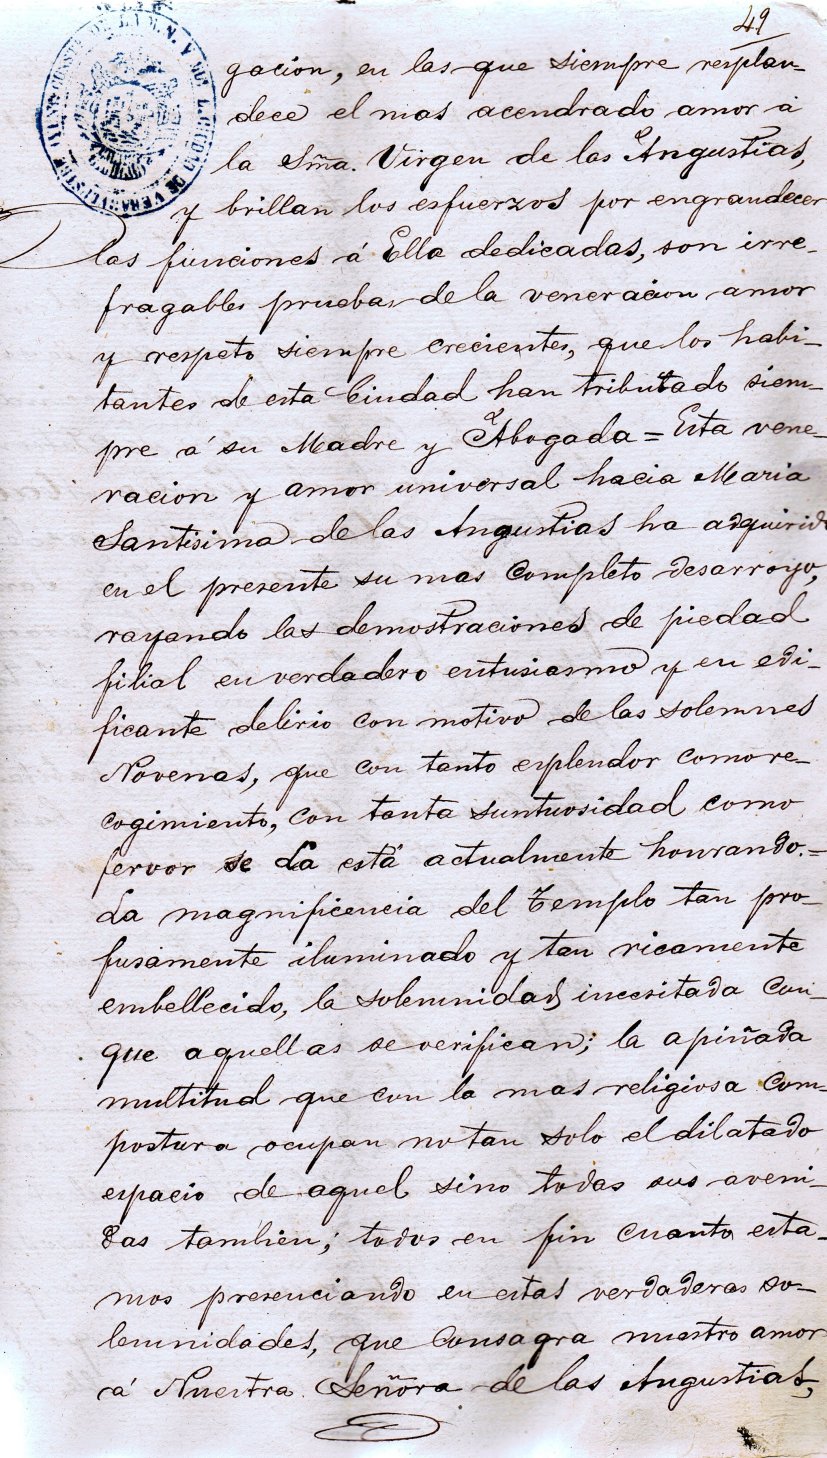 49
gacion, en las que siempre resplan-
dece el mas acendrado amor á
la Sma. Virgen de las Angustias,
y brillan los esfuerzos por engrandecer
las funciones á Ella dedicadas, son irre-
fragables pruebas de la veneracion amor
y respeto siempre crecientes, que los habi-
tantes de esta Ciudad han tributado siem-
pre á su Madre y Abogada = Esta vene-
racion y amor universal hacia Maria
Santisima de las Angustias ha adquirido
en el presente su mas completo desarroyo,
rayando las demostraciones de piedad
filial en verdadero entusiasmo y en edi-
ficante delirio con motivo de las solemnes
Novenas, que con tanto esplendor como re-
cogimiento, con tanta suntuosidad como
fervor se La está actualmente honrando. =
La magnificencia del Templo tan pro-
fusamente iluminado y tan ricamente
embellecido, la solemnidad inusitada con
que aquellas se verifican; la apiñada
multitud que con la mas religiosa com-
postura ocupan no tan solo el dilatado
espacio de aquel sino todas sus aveni-
das tambien; todos en fin cuanto esta-
mos presenciando en estas verdaderas so-
lemnidades, que consagra nuestro amor
á Nuestra Señora de las Angustias,